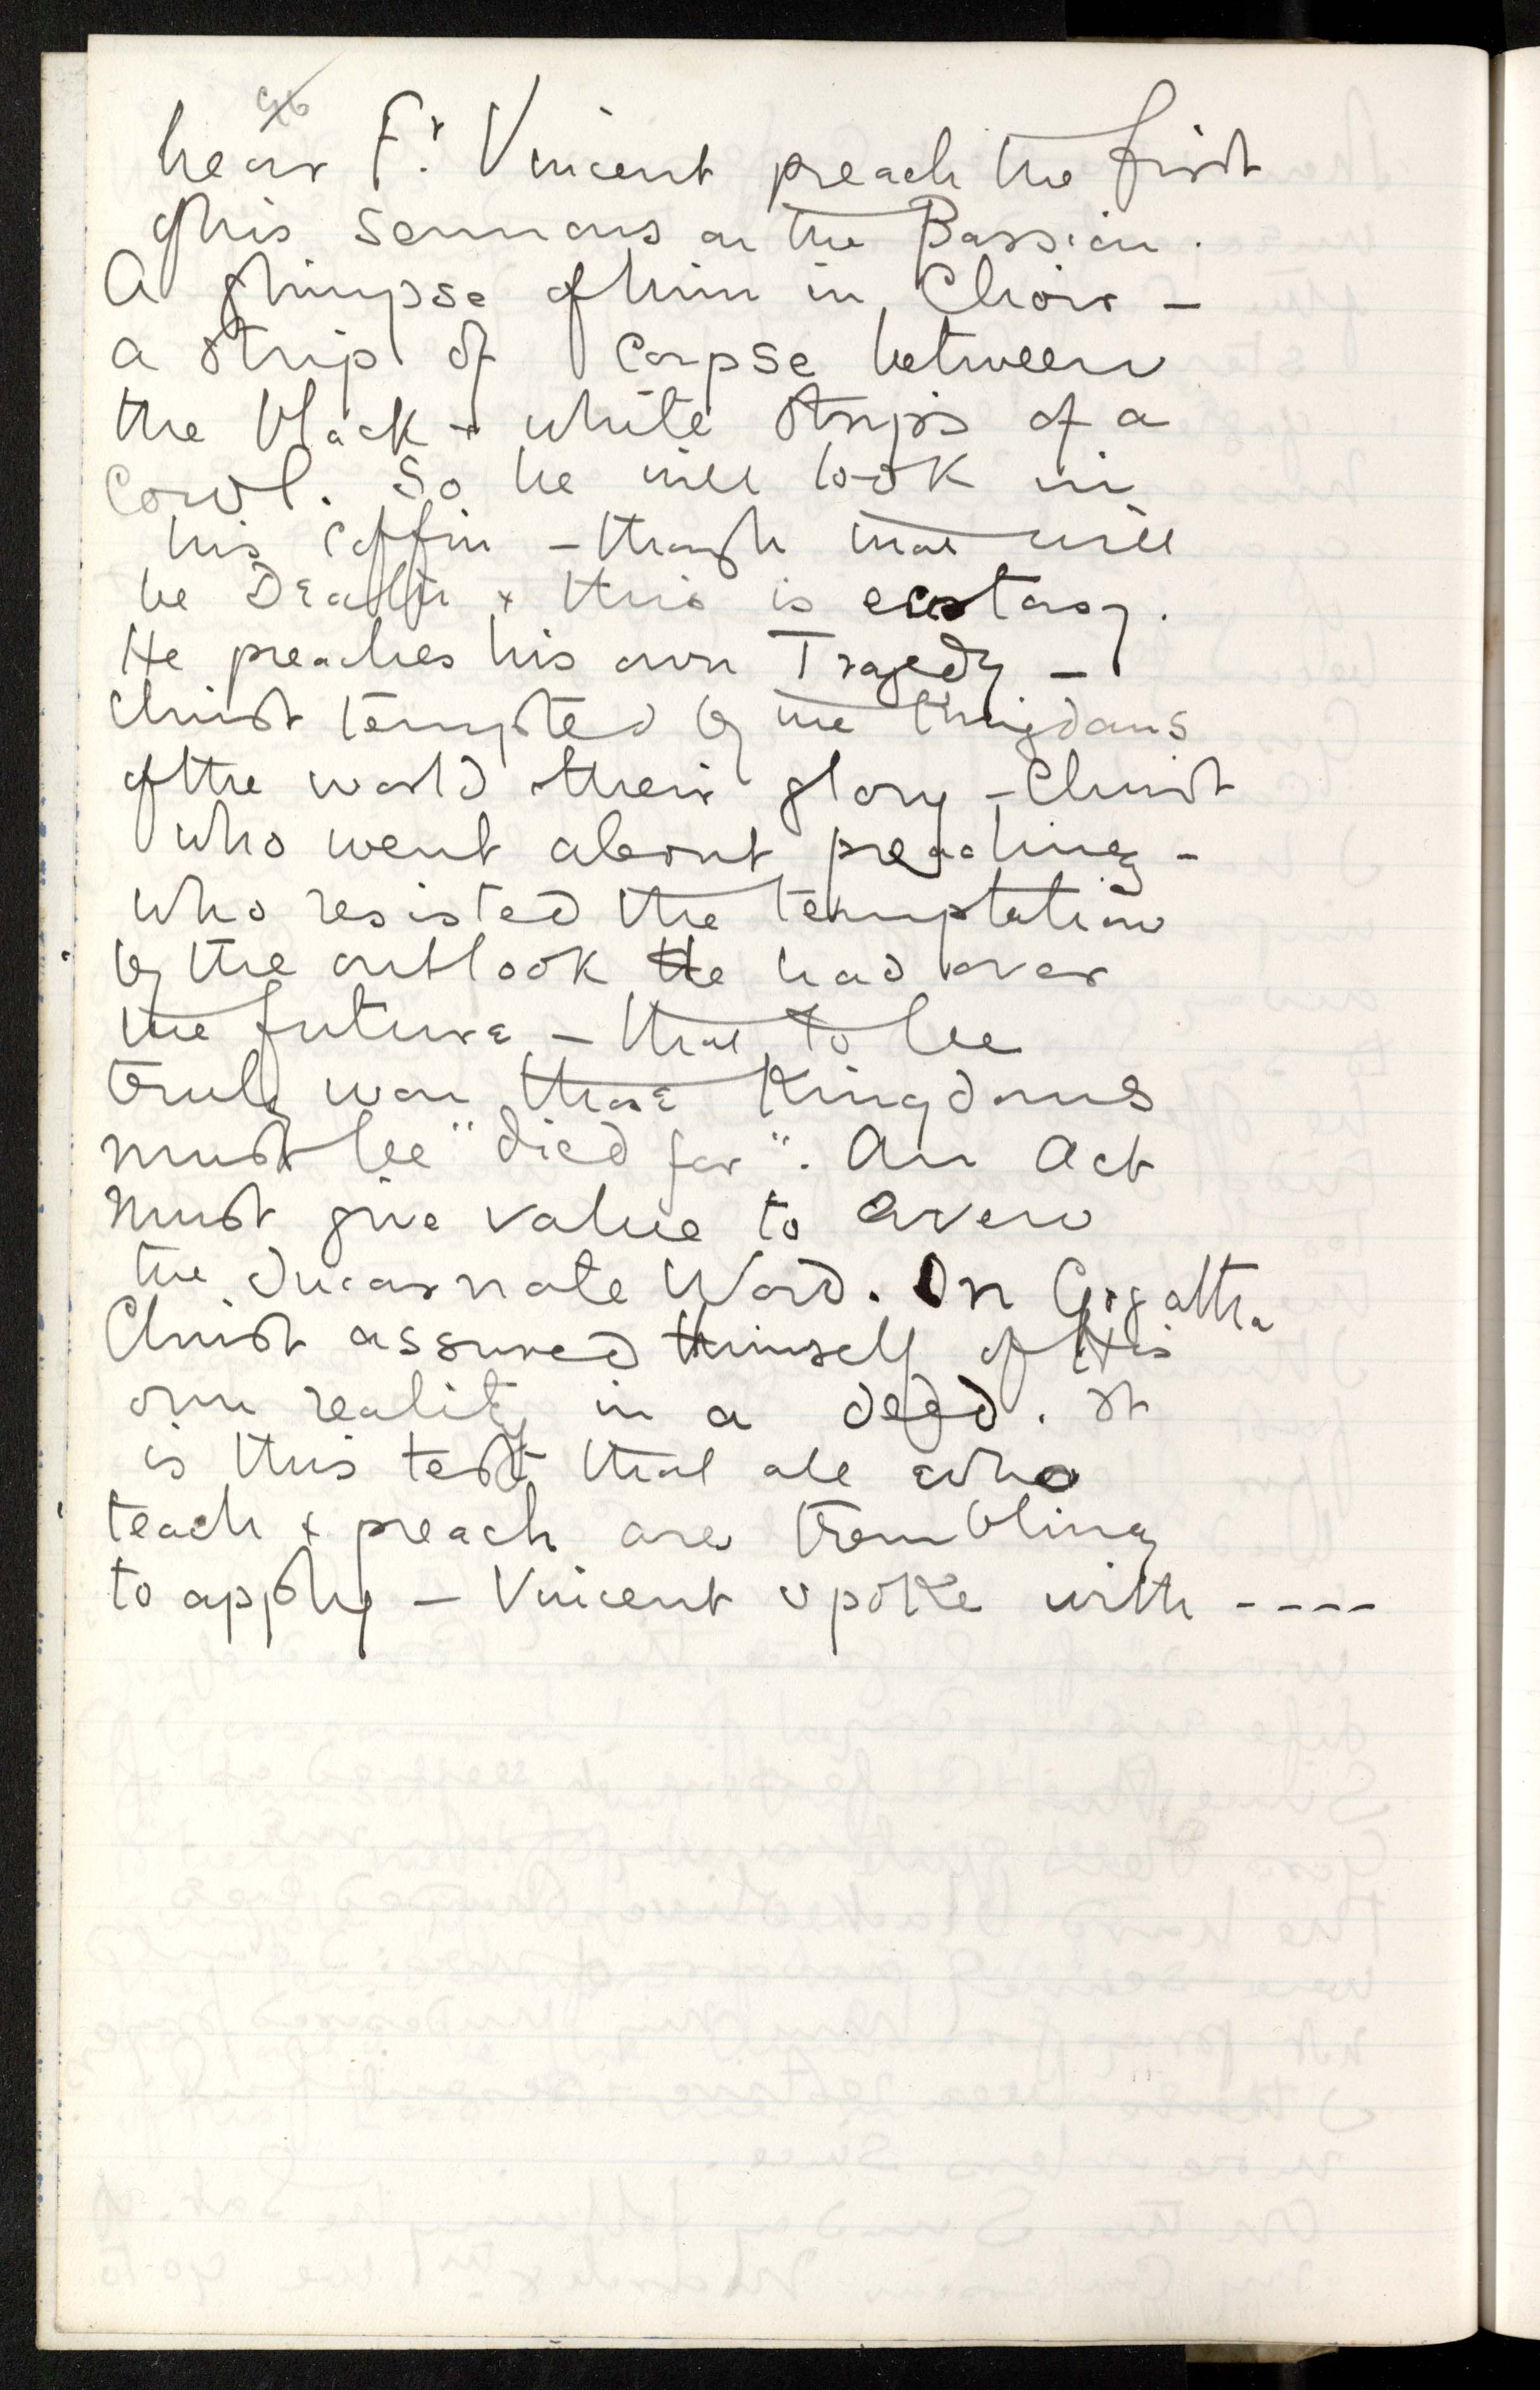 96
hear Fr. Vincent preach the first
of his sermons on the Passion.
A glimpse of him in Choir –
a strip of corpse between
the black + white strips of a
cowl. So he will look in
his coffin – though that will
be Death + this is ecstasy.
He preaches his own Tragedy –
Christ tempted by the Kingdoms
of the world their glory – Christ
who went about preaching –
who resisted the temptation
by the outlook He had over
the future – that to be
truly won those Kingdoms
must be "died for". An Act
must give value to even
the Incarnate Word. On Golgotha
Christ assured Himself of His
own reality in a deed. It
is this test that all who
teach + preach are trembling
to apply – Vincent spoke with ----